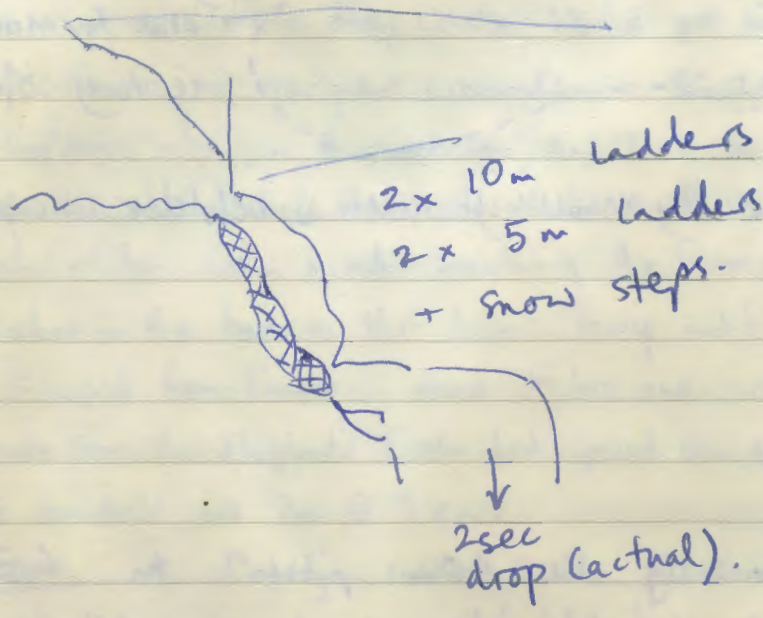 2x 10m ladders
2x 5m ladders
+ snow steps.
2sec
drop (actual).